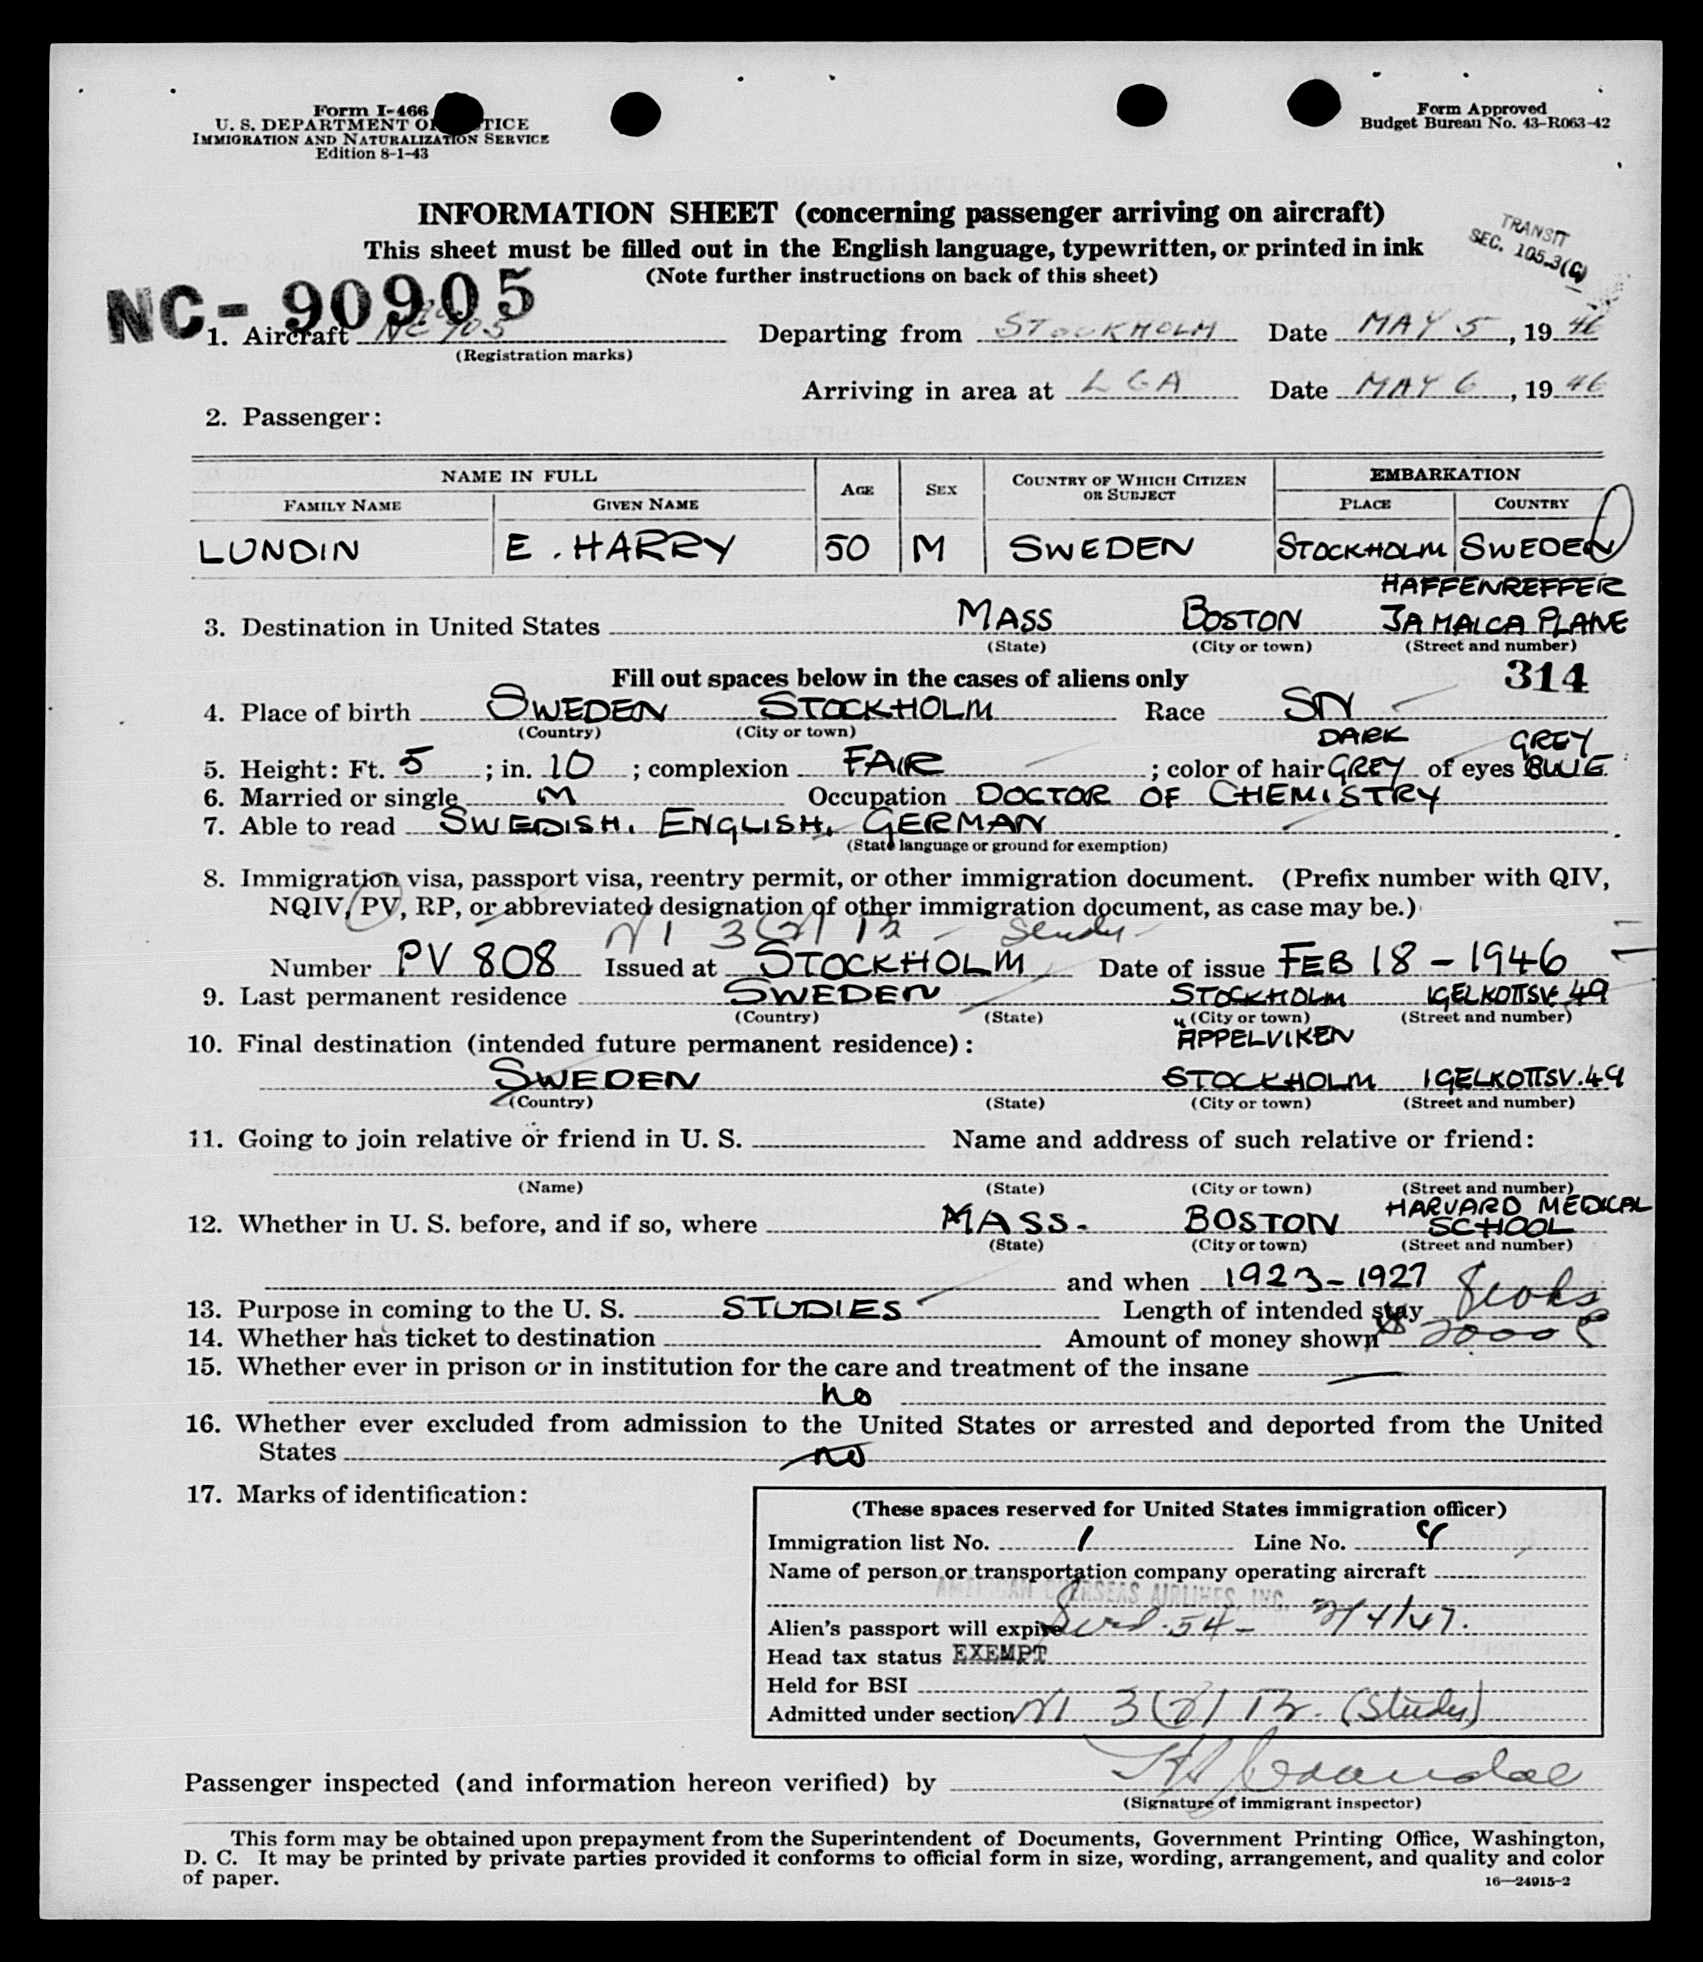 Form I-466
U. S. DEPARTMENT OF JUSTICE
IMMIGRATION AND NATURALIZATION SERVICE
Edition 8-1-43
Form Approved
Budget Bureau No. 43-R063-42
INFORMATION SHEET (concerning passenger arriving on aircraft)
This sheet must be filled out in the English language, typewritten, or printed in ink
(Note further instructions on back of this sheet)
TRANSIT
SEC. 105.3(C)
NC- 90905
1. Aircraft NC 90905 Departing from STOCKHOLM Date MAY 5, 1946
(Registration marks)
Arriving in area at LGA Date MAY 6, 1946
2. Passenger:
NAME IN FULL AGE SEX COUNTRY OF WHICH CITIZEN OR SUBJECT EMBARKATION
FAMILY NAME GIVEN NAME PLACE COUNTRY
LUNDIN E. HARRY 50 M SWEDEN STOCKHOLM SWEDEN
HAFFENREFFER
3. Destination in United States MASS BOSTON JAMAICA PLANE
(State) (City or town) (Street and number)
Fill out spaces below in the cases of aliens only 314
4. Place of birth SWEDEN STOCKHOLM Race SN
(Country) (City or town)
DARK GREY
5. Height: Ft. 5; in. 10; complexion FAIR; color of hair GREY of eyes BLUE
6. Married or single M Occupation DOCTOR OF CHEMISTRY
7. Able to read SWEDISH, ENGLISH, GERMAN
(State language or ground for exemption)
8. Immigration visa, passport visa, reentry permit, or other immigration document. (Prefix number with QIV,
NQIV, PV, RP, or abbreviated designation of other immigration document, as case may be.)
3(2) Study
Number PV 808 Issued at STOCKHOLM Date of issue FEB 18 - 1946
9. Last permanent residence SWEDEN STOCKHOLM IGELKOTTSV. 49
(Country) (State) (City or town) (Street and number)
ÄPPELVIKEN
10. Final destination (intended future permanent residence):
SWEDEN STOCKHOLM IGELKOTTSV. 49
(Country) (State) (City or town) (Street and number)
11. Going to join relative or friend in U. S. Name and address of such relative or friend:
(Name) (State) (City or town) (Street and number)
HARVARD MEDICAL
12. Whether in U. S. before, and if so, where MASS. BOSTON SCHOOL
(State) (City or town) (Street and number)
and when 1923-1927
13. Purpose in coming to the U. S. STUDIES Length of intended stay
14. Whether has ticket to destination Amount of money shown 2000
15. Whether ever in prison or in institution for the care and treatment of the insane
no
16. Whether ever excluded from admission to the United States or arrested and deported from the United
States no
17. Marks of identification:
(These spaces reserved for United States immigration officer)
Immigration list No. 1 Line No. 4
Name of person or transportation company operating aircraft
AMERICAN OVERSEAS AIRLINES, INC.
Alien's passport will expire 54 - 2/4/47.
Head tax status EXEMPT
Held for BSI
Admitted under section 3(2) (Study)
Passenger inspected (and information hereon verified) by
(Signature of immigrant inspector)
This form may be obtained upon prepayment from the Superintendent of Documents, Government Printing Office, Washington,
D. C. It may be printed by private parties provided it conforms to official form in size, wording, arrangement, and quality and color
of paper.
16—24915-2